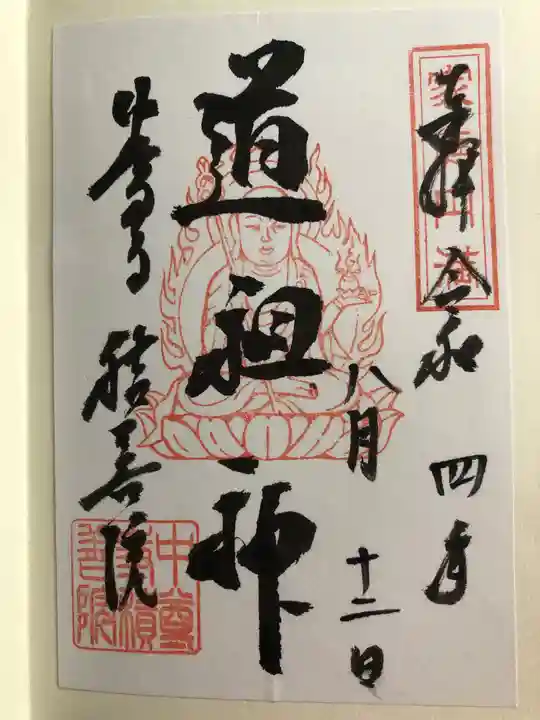 奉拝 令和 四年
八月 十二日
道祖神
中尊寺 積善院
中尊
寺積
善院